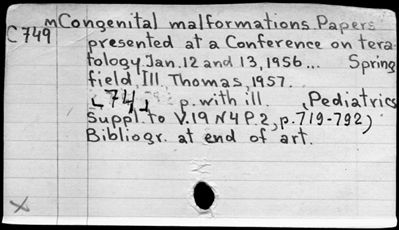 mCongenital malformations. Papers
C749 presented at a Conference on tera-
tology. Jan. 12 and 13, 1956... Spring
field, Ill. Thomas, 1957.
74 p. with ill. (Pediatrics
Suppl. to V.19 N4 P.2, p.719-792)
Bibliogr. at end of art.